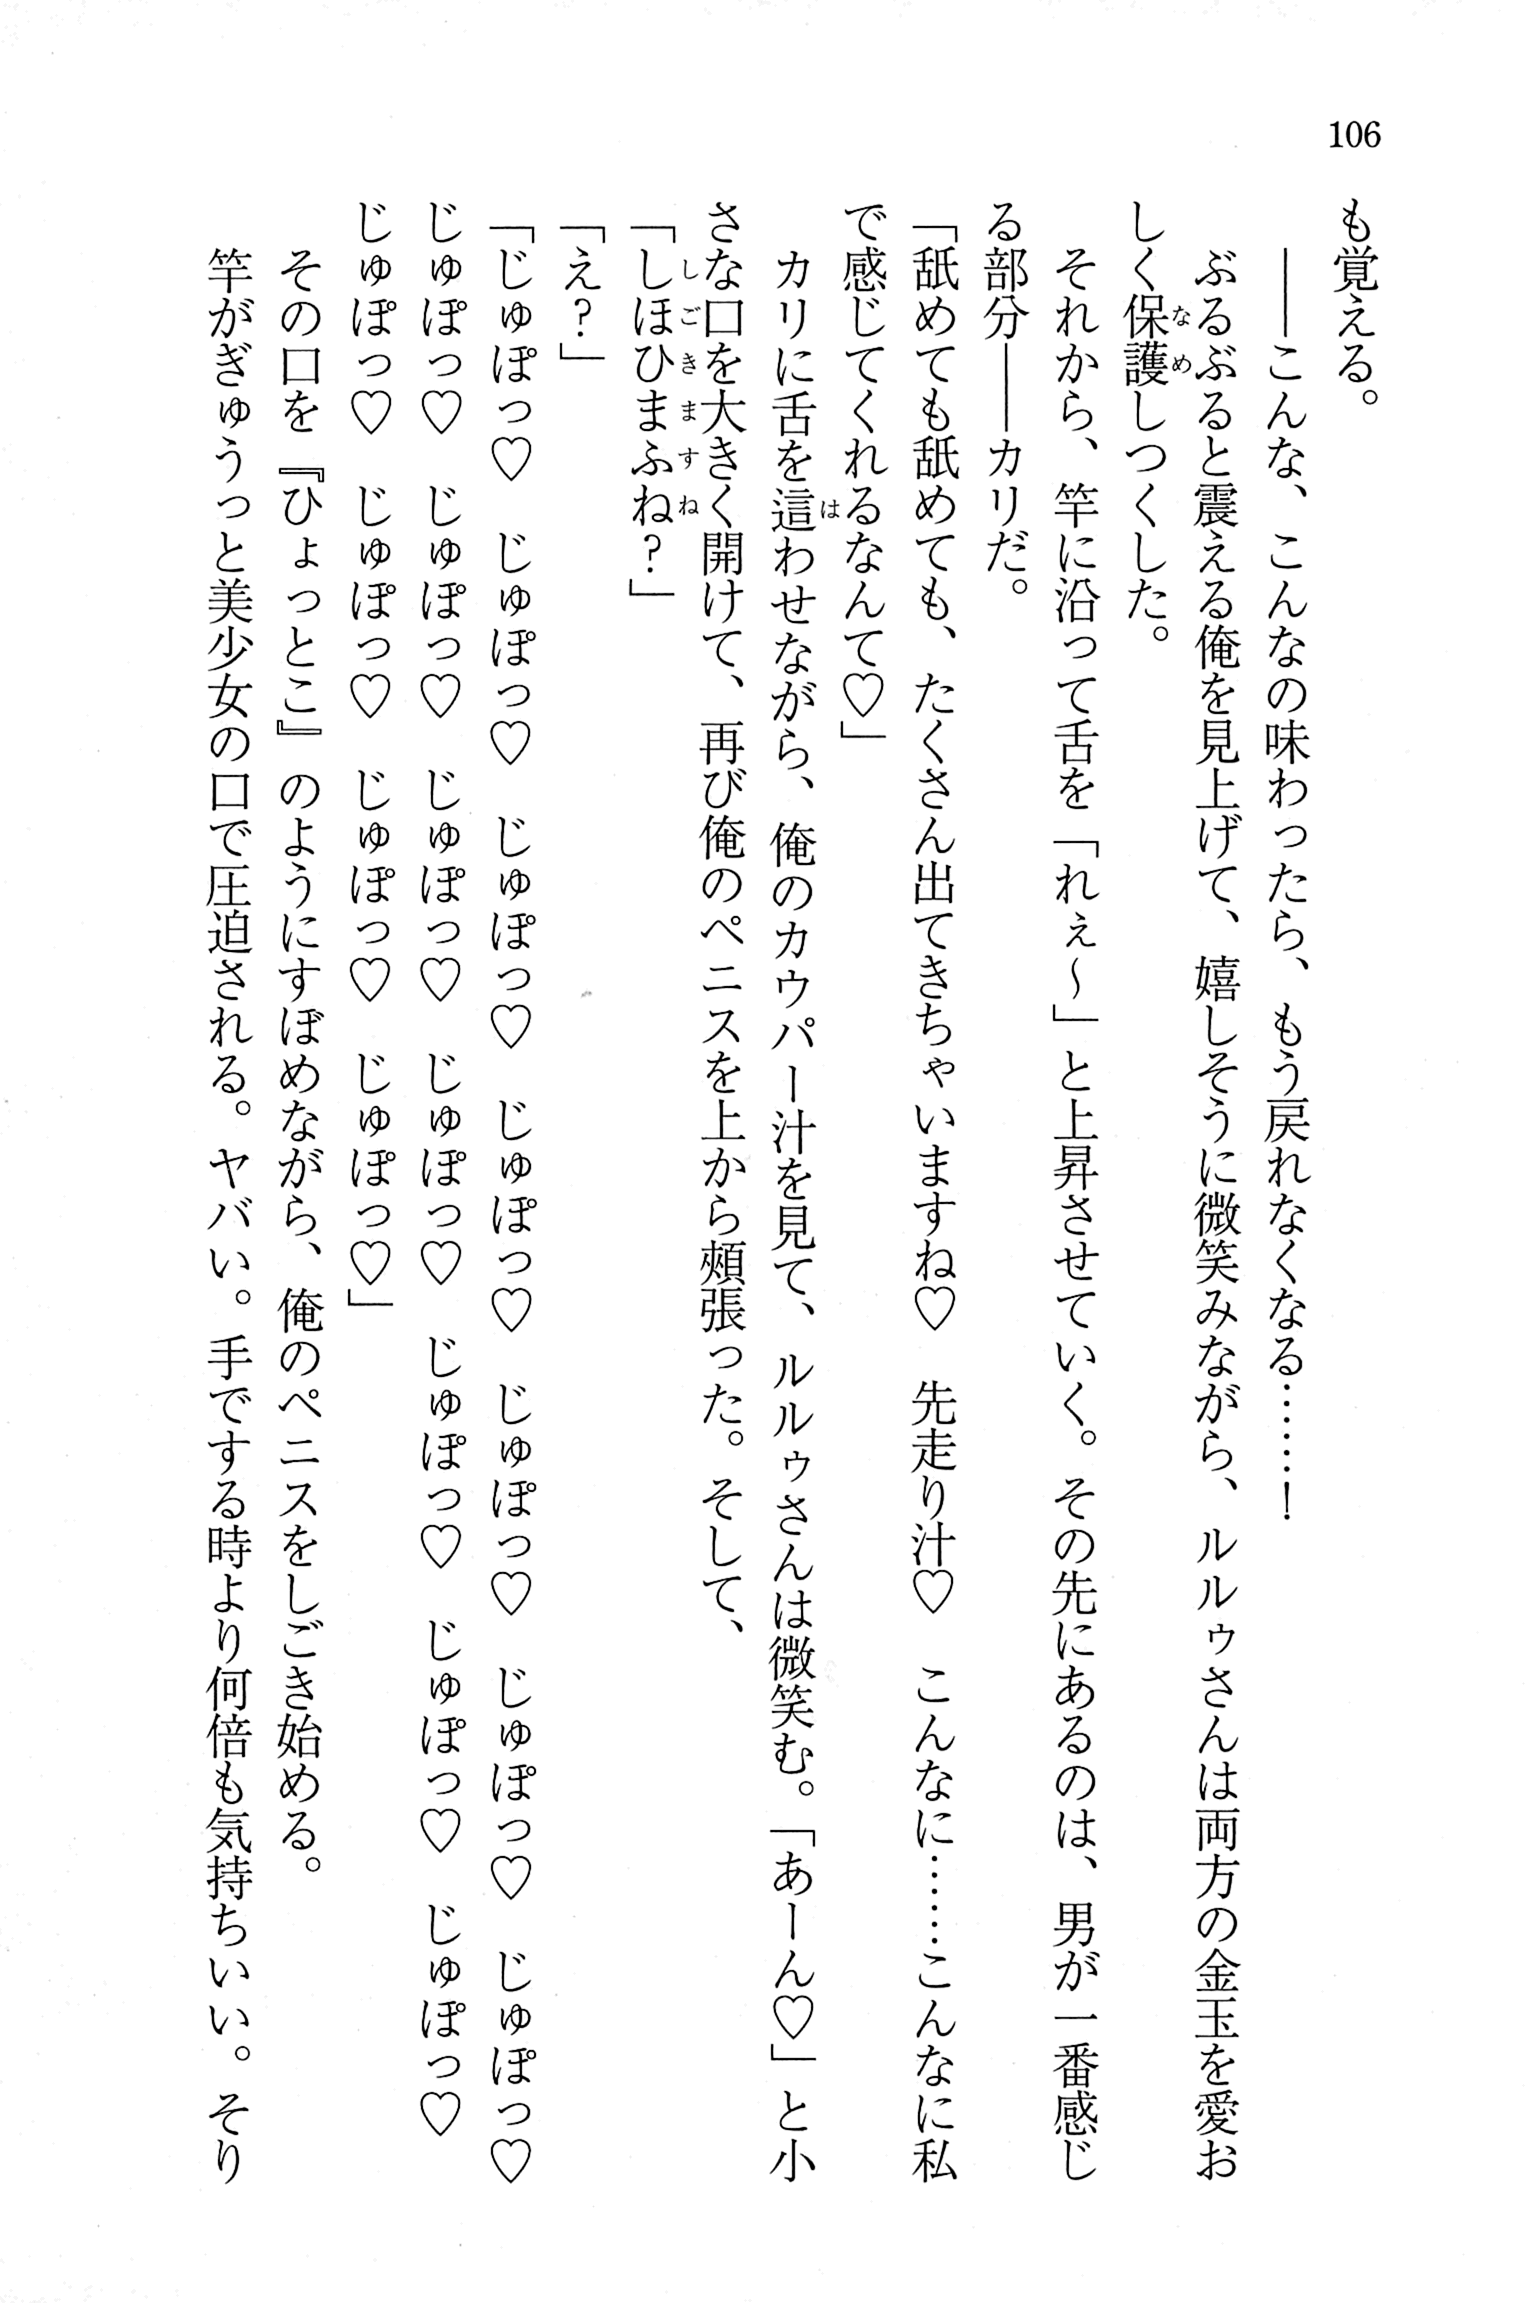 106
も覚える。
――こんな、こんなの味わったら、もう戻れなくなる……！
ぶるぶると震える俺を見上げて、嬉しそうに微笑みながら、ルルゥさんは両方の金玉を愛お
しく保護しつくした。
なめ
それから、竿に沿って舌を「れぇ～」と上昇させていく。その先にあるのは、男が一番感じ
る部分――カリだ。
「舐めても舐めても、たくさん出てきちゃいますね♡　先走り汁♡　こんなに……こんなに私
で感じてくれるなんて♡」
カリに舌を這わせながら、俺のカウパー汁を見て、ルルゥさんは微笑む。「あーん♡」と小
は
さな口を大きく開けて、再び俺のペニスを上から頬張った。そして、
「しほひまふね？」
しごきますね
「え？」
「じゅぽっ♡　じゅぽっ♡　じゅぽっ♡　じゅぽっ♡　じゅぽっ♡　じゅぽっ♡　じゅぽっ♡
じゅぽっ♡　じゅぽっ♡　じゅぽっ♡　じゅぽっ♡　じゅぽっ♡　じゅぽっ♡　じゅぽっ♡
じゅぽっ♡　じゅぽっ♡　じゅぽっ♡　じゅぽっ♡」
その口を『ひょっとこ』のようにすぼめながら、俺のペニスをしごき始める。
竿がぎゅうっと美少女の口で圧迫される。ヤバい。手でする時より何倍も気持ちいい。そり